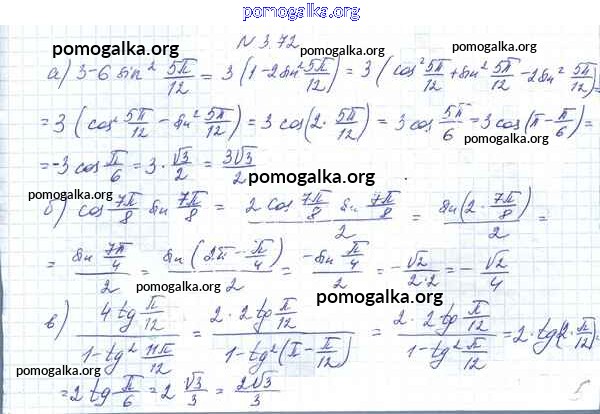 pomogalka.org
N 3.72
pomogalka.org pomogalka.org
а) 3-6 sin² 5π/12 = 3(1-2sin² 5π/12) = 3(cos² 5π/12 + sin² 5π/12 - 2sin² 5π/12) =
= 3(cos² 5π/12 - sin² 5π/12) = 3cos(2· 5π/12) = 3cos 5π/6 = 3cos(π - π/6) =
pomogalka.org pomogalka.org
= -3cos π/6 = 3· √3/2 = 3√3/2
pomogalka.org
pomogalka.org
б) cos 7π/8 sin 7π/8 = 2cos 7π/8 sin 7π/8 / 2 = sin(2· 7π/8) / 2 =
pomogalka.org
= sin 7π/4 / 2 = sin(2π - π/4) / 2 = -sin π/4 / 2 = - √2/2·2 = - √2/4
pomogalka.org
pomogalka.org
в) 4tg π/12 / 1-tg² 11π/12 = 2·2tg π/12 / 1-tg²(π - π/12) = 2·2tg π/12 / 1-tg² π/12 = 2·tg(2· π/12) =
pomogalka.org
= 2tg π/6 = 2 √3/3 = 2√3/3
pomogalka.org
pomogalka.org